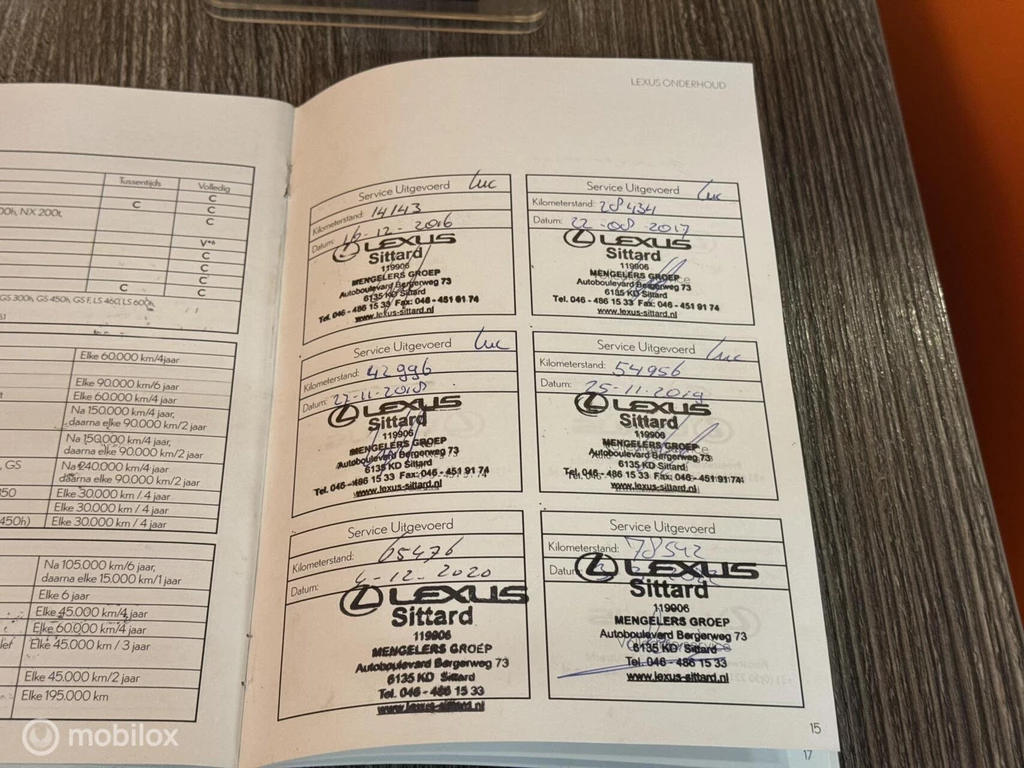 LEXUS ONDERHOUD
Tussentijds Volledig
C
C C
00h, NX 200t, C
V*6
C
C
C
C C
GS 300h, GS 450h, GS F, LS 460, LS 600h,
Elke 60.000 km/4jaar
Elke 90.000 km/6 jaar
Elke 60.000 km/4 jaar
Na 150.000 km/4 jaar,
daarna elke 90.000 km/2 jaar
Na 150.000 km/4 jaar,
daarna elke 90.000 km/2 jaar
, GS Na 240.000 km/4 jaar
daarna elke 90.000 km/2 jaar
350 Elke 30.000 km / 4 jaar
Elke 30.000 km / 4 jaar
450h) Elke 30.000 km / 4 jaar
Na 105.000 km/6 jaar,
daarna elke 15.000 km/1 jaar
Elke 6 jaar
Elke 45.000 km/4 jaar
Elke 60.000 km/4 jaar
lef Elke 45.000 km / 3 jaar
Elke 45.000 km/2 jaar
Elke 195.000 km
Service Uitgevoerd Luc
Kilometerstand: 14143
Datum: 16-12-2016
LEXUS
Sittard
119906
MENGELERS GROEP
Autoboulevard Bergerweg 73
6135 KD Sittard
Tel. 046 - 486 15 33 Fax: 046 - 451 91 74
www.lexus-sittard.nl
Service Uitgevoerd Luc
Kilometerstand: 28434
Datum: 22-08-2017
LEXUS
Sittard
119906
MENGELERS GROEP
Autoboulevard Bergerweg 73
6135 KD Sittard
Tel. 046 - 486 15 33 Fax: 046 - 451 91 74
www.lexus-sittard.nl
Service Uitgevoerd Luc
Kilometerstand: 42996
Datum: 27-11-2018
LEXUS
Sittard
119906
MENGELERS GROEP
Autoboulevard Bergerweg 73
6135 KD Sittard
Tel. 046 - 486 15 33 Fax: 046 - 451 91 74
www.lexus-sittard.nl
Service Uitgevoerd Luc
Kilometerstand: 54956
Datum: 25-11-2019
LEXUS
Sittard
119906
MENGELERS GROEP
Autoboulevard Bergerweg 73
6135 KD Sittard
Tel. 046 - 486 15 33 Fax: 046 - 451 91 74
www.lexus-sittard.nl
Service Uitgevoerd
Kilometerstand: 65476
Datum: 4-12-2020
LEXUS
Sittard
119906
MENGELERS GROEP
Autoboulevard Bergerweg 73
6135 KD Sittard
Tel. 046 - 486 15 33
www.lexus-sittard.nl
Service Uitgevoerd
Kilometerstand: 78542
Datum
LEXUS
Sittard
119906
MENGELERS GROEP
Autoboulevard Bergerweg 73
6135 KD Sittard
Tel. 046 - 486 15 33
www.lexus-sittard.nl
15
17
mobilox